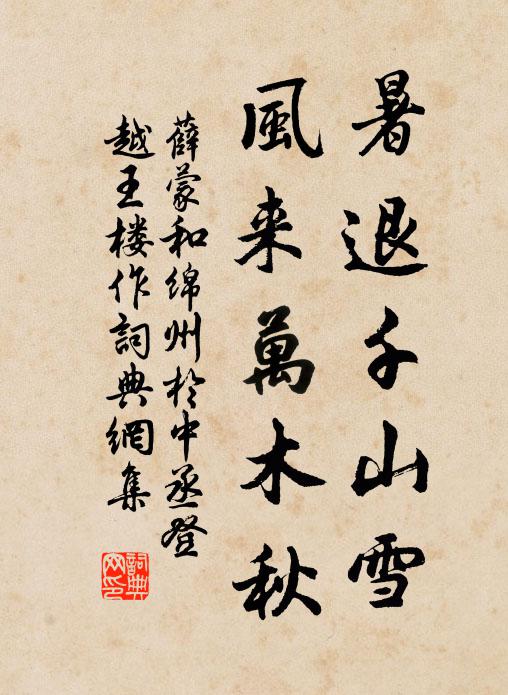 暑退千山雪
風来萬木秋
薛蒙和绵州於中丞登
越王楼作詞典網集
詞典网印